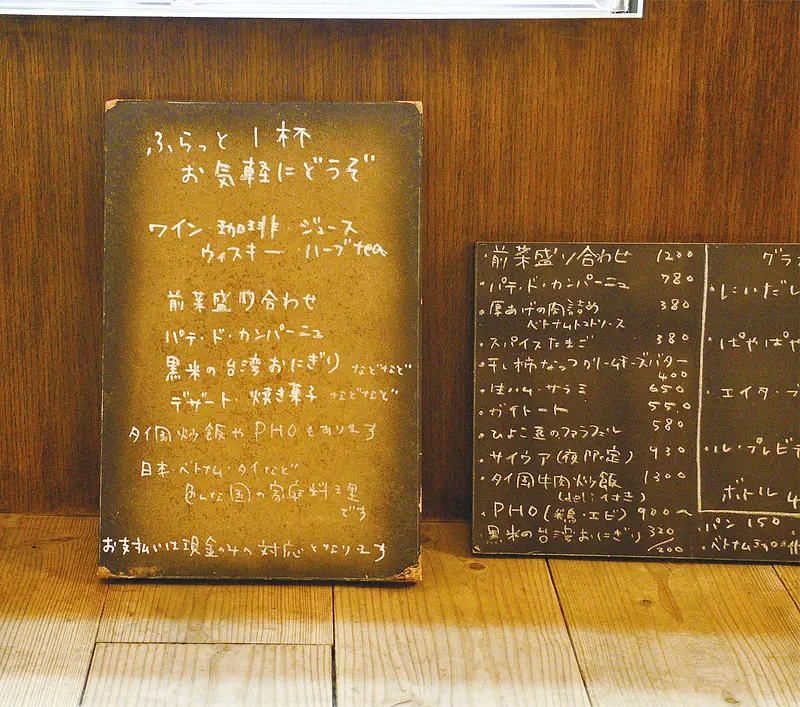 ふらっと1杯
お気軽にどうぞ
ワイン・珈琲・ジュース
ウィスキー・ハーブtea
前菜盛り合わせ
パテ・ド・カンパーニュ
黒米の台湾おにぎり などなど
デザート・焼き菓子 などなど
タイ国炒飯やPHOもあります
日本・ベトナム・タイなど
色んな国の家庭料理
です
お支払いは現金のみの対応となります
・前菜盛り合わせ 1200
・パテ・ド・カンパーニュ 780
・厚あげの肉詰め 380
ベトナムトマトソース
・スパイスたまご 380
・干し柿なっつクリームチーズバター
400
・生ハム・サラミ 650
・ガイトート 550
・ひよこ豆のファラフェル 580
・サイウア(夜限定) 930
・タイ国牛肉炒飯 1300
(deli付き)
・PHO(鶏・エビ) 900〜
黒米の台湾おにぎり 320
/200
グラ
・にいだし
・ぱやぱや
・エイタ・ブ
・ル・プレビ
ボトル 4
・パン 150
・ベトナム